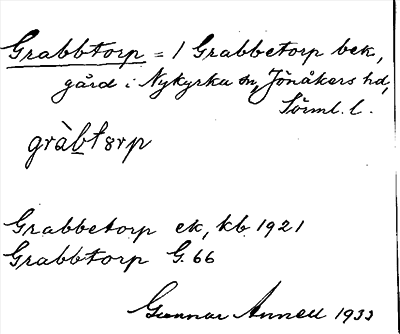 Grabbtorp = / Grabbetorp bek,
gård i Nykyrka sn, Jönåkers hd,
Sörml. l.
gràbtɘrp
Grabbetorp ek, kb 1921
Grabbtorp G. 66
Gunnar Annell 1933